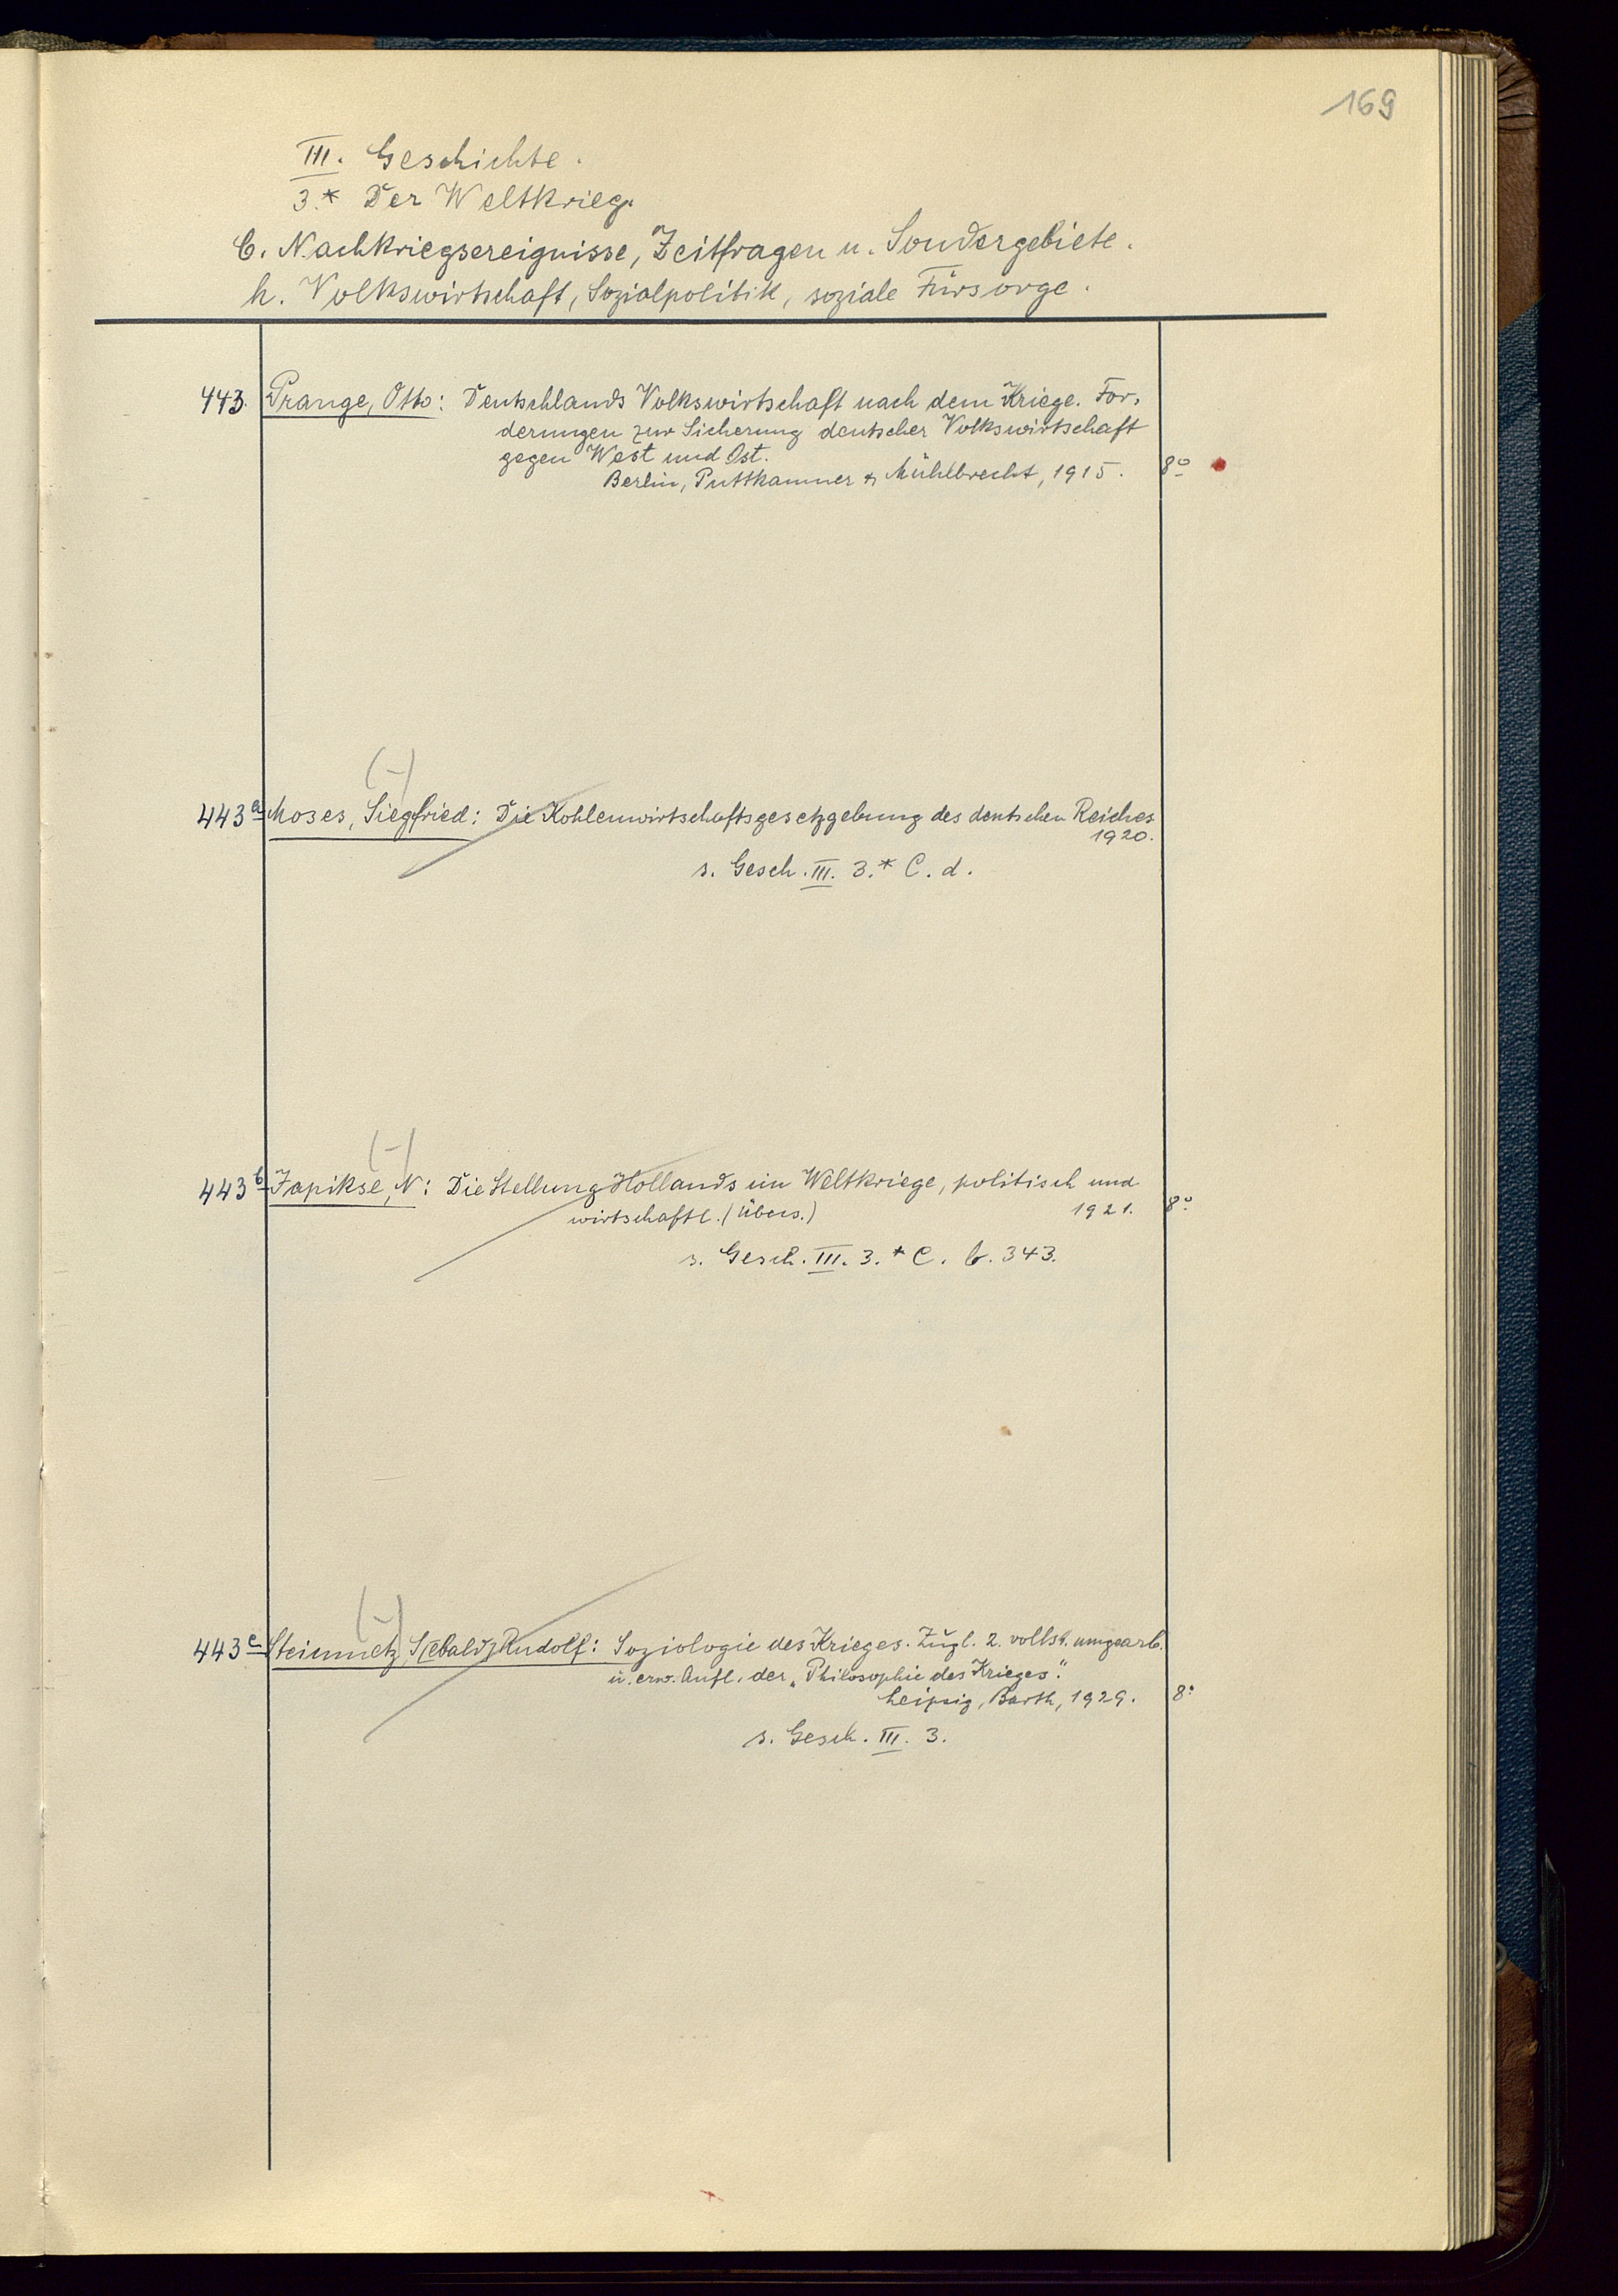 169
III. Geschichte.
3.* Der Weltkrieg.
C. Nachkriegsereignisse, Zeitfragen u. Sondergebiete.
h. Volkswirtschaft, Sozialpolitik, soziale Fürsorge.
443. Prange, Otto: Deutschlands Volkswirtschaft nach dem Kriege. For-
derungen zur Sicherung deutscher Volkswirtschaft
gegen West und Ost.
Berlin, Puttkammer & Mühlbrecht, 1915. 8°
(-)
443a Moses, Siegfried: Die Kohlenwirtschaftsgesetzgebung des deutschen Reiches
1920.
s. Gesch. III. 3.* C. d.
(-)
443b Japikse, N: Die Stellung Hollands im Weltkriege, politisch und
wirtschaftl. (Übers.) 1921. 8°
s. Gesch. III. 3.* C. b. 343.
(-)
443c Steinmetz, S[ebald] Rudolf: Soziologie des Krieges. Zugl. 2. vollst. umgearb.
u. erw. Aufl. der „Philosophie des Krieges“.
Leipzig, Barth, 1929. 8°
s. Gesch. III. 3.